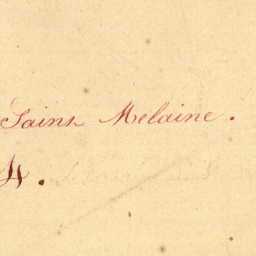 Saint Melaine.
4.